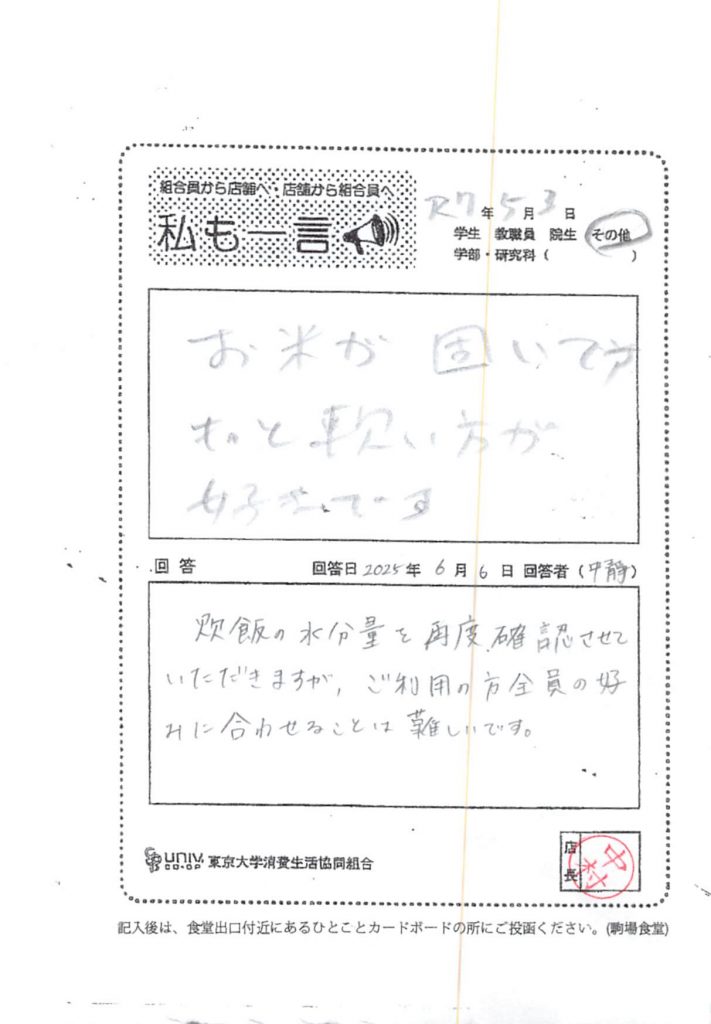 組合員から店舗へ・店舗から組合員へ
私も一言
R7年5月3日
学生 教職員 院生 その他
学部・研究科( )
お米が 固いです
もっと軟い方が
好きです
回答 回答日2025年6月6日 回答者(中静)
炊飯の水分量を再度確認させて
いただきますが、ご利用の方全員の好
みに合わせることは難しいです。
UNIV. CO-OP 東京大学消費生活協同組合
店長 中村
記入後は、食堂出口付近にあるひとことカードボードの所にご投函ください。(駒場食堂)